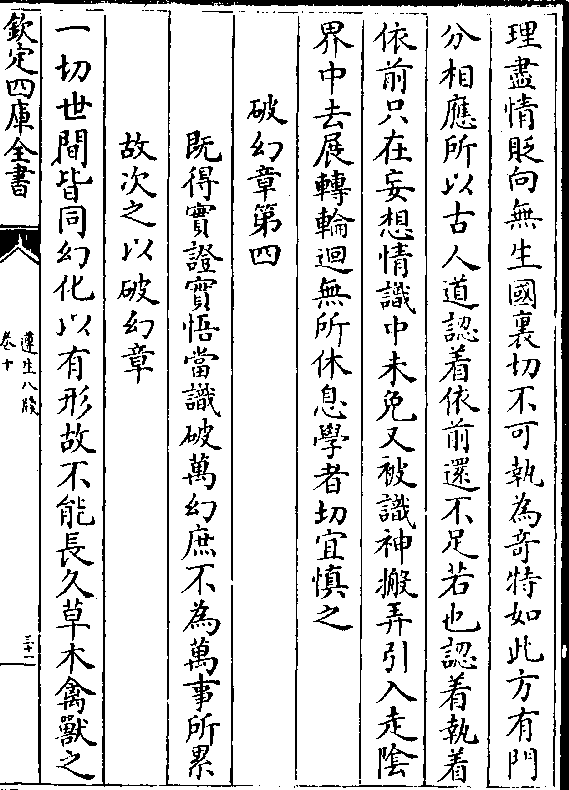 理盡情貶向無生國裏切不可執為奇特如此方有門
分相應所以古人道認着依前還不足若也認着執着
依前只在妄想情識中未免又被識神搬弄引入走陰
界中去展轉輪迴無所休息學者切宜慎之
破幻章第四
既得實證實悟當識破萬幻庶不為萬事所累
故次之以破幻章
一切世間皆同幻化以有形故不能長久草木禽獸之
欽定四庫全書
遵生八牋
卷十
三十一